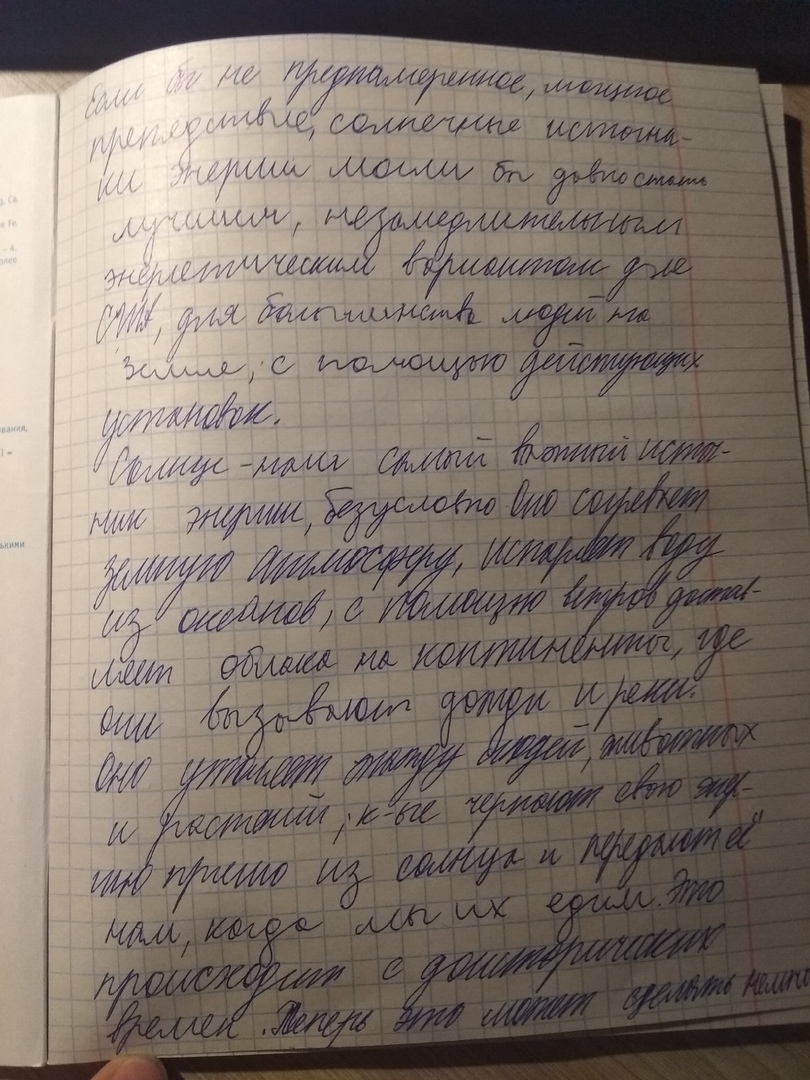 Если бы не преднамеренное, мощное
препядствие, солнечные источни-
ки энергии могли бы давно стать
лучшим, незамедлительным
энергетическим вариантом для
США, для большинства людей на
Земле, с помощью действующих
установок.
Солнце - наш самый важный источ-
ник энергии, безусловно Оно согревает
земную атмосферу, испаряет воду
из океанов, с помощью ветров достав-
ляет облака на континенты, где
они вызывают дожди и реки.
Оно утоляет жажду людей, животных
и растений, к-ые черпают свою энер-
гию прямо из солнца и передают её
нам, когда мы их едим. Это
происходит с доисторических
времен. Теперь это может сделать